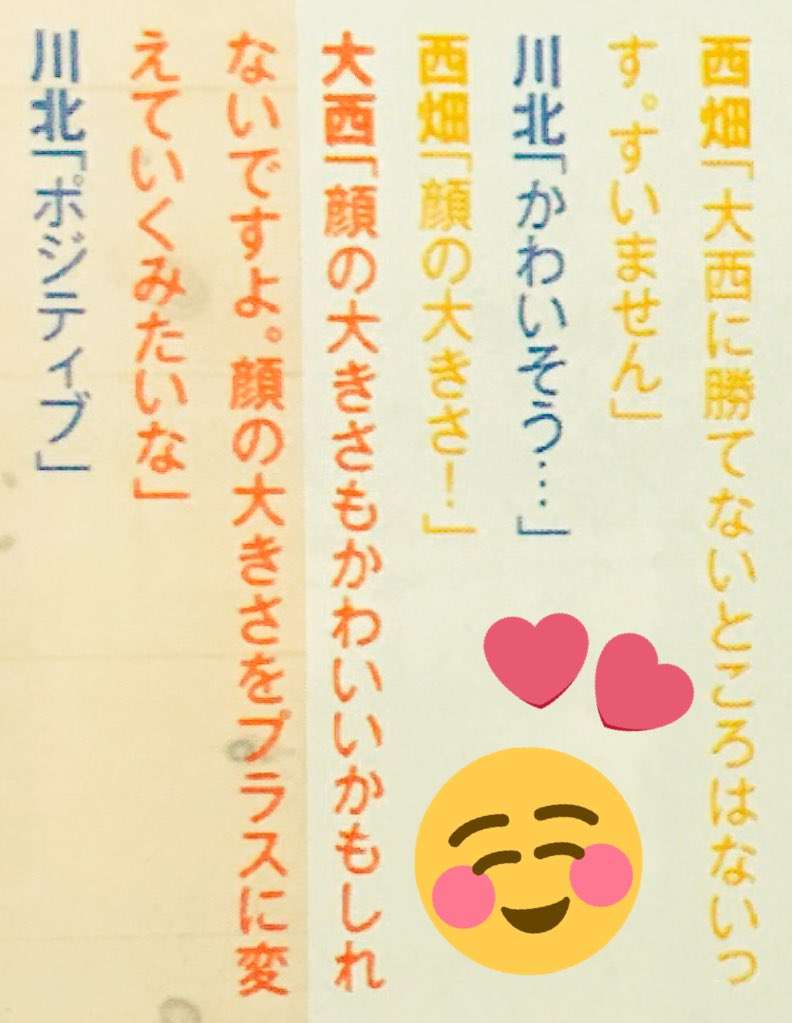 西畑「大西に勝てないところはないっ
す。すいません」
川北「かわいそう…」
西畑「顔の大きさ！」
大西「顔の大きさもかわいいかもしれ
ないですよ。顔の大きさをプラスに変
えていくみたいな」
川北「ポジティブ」